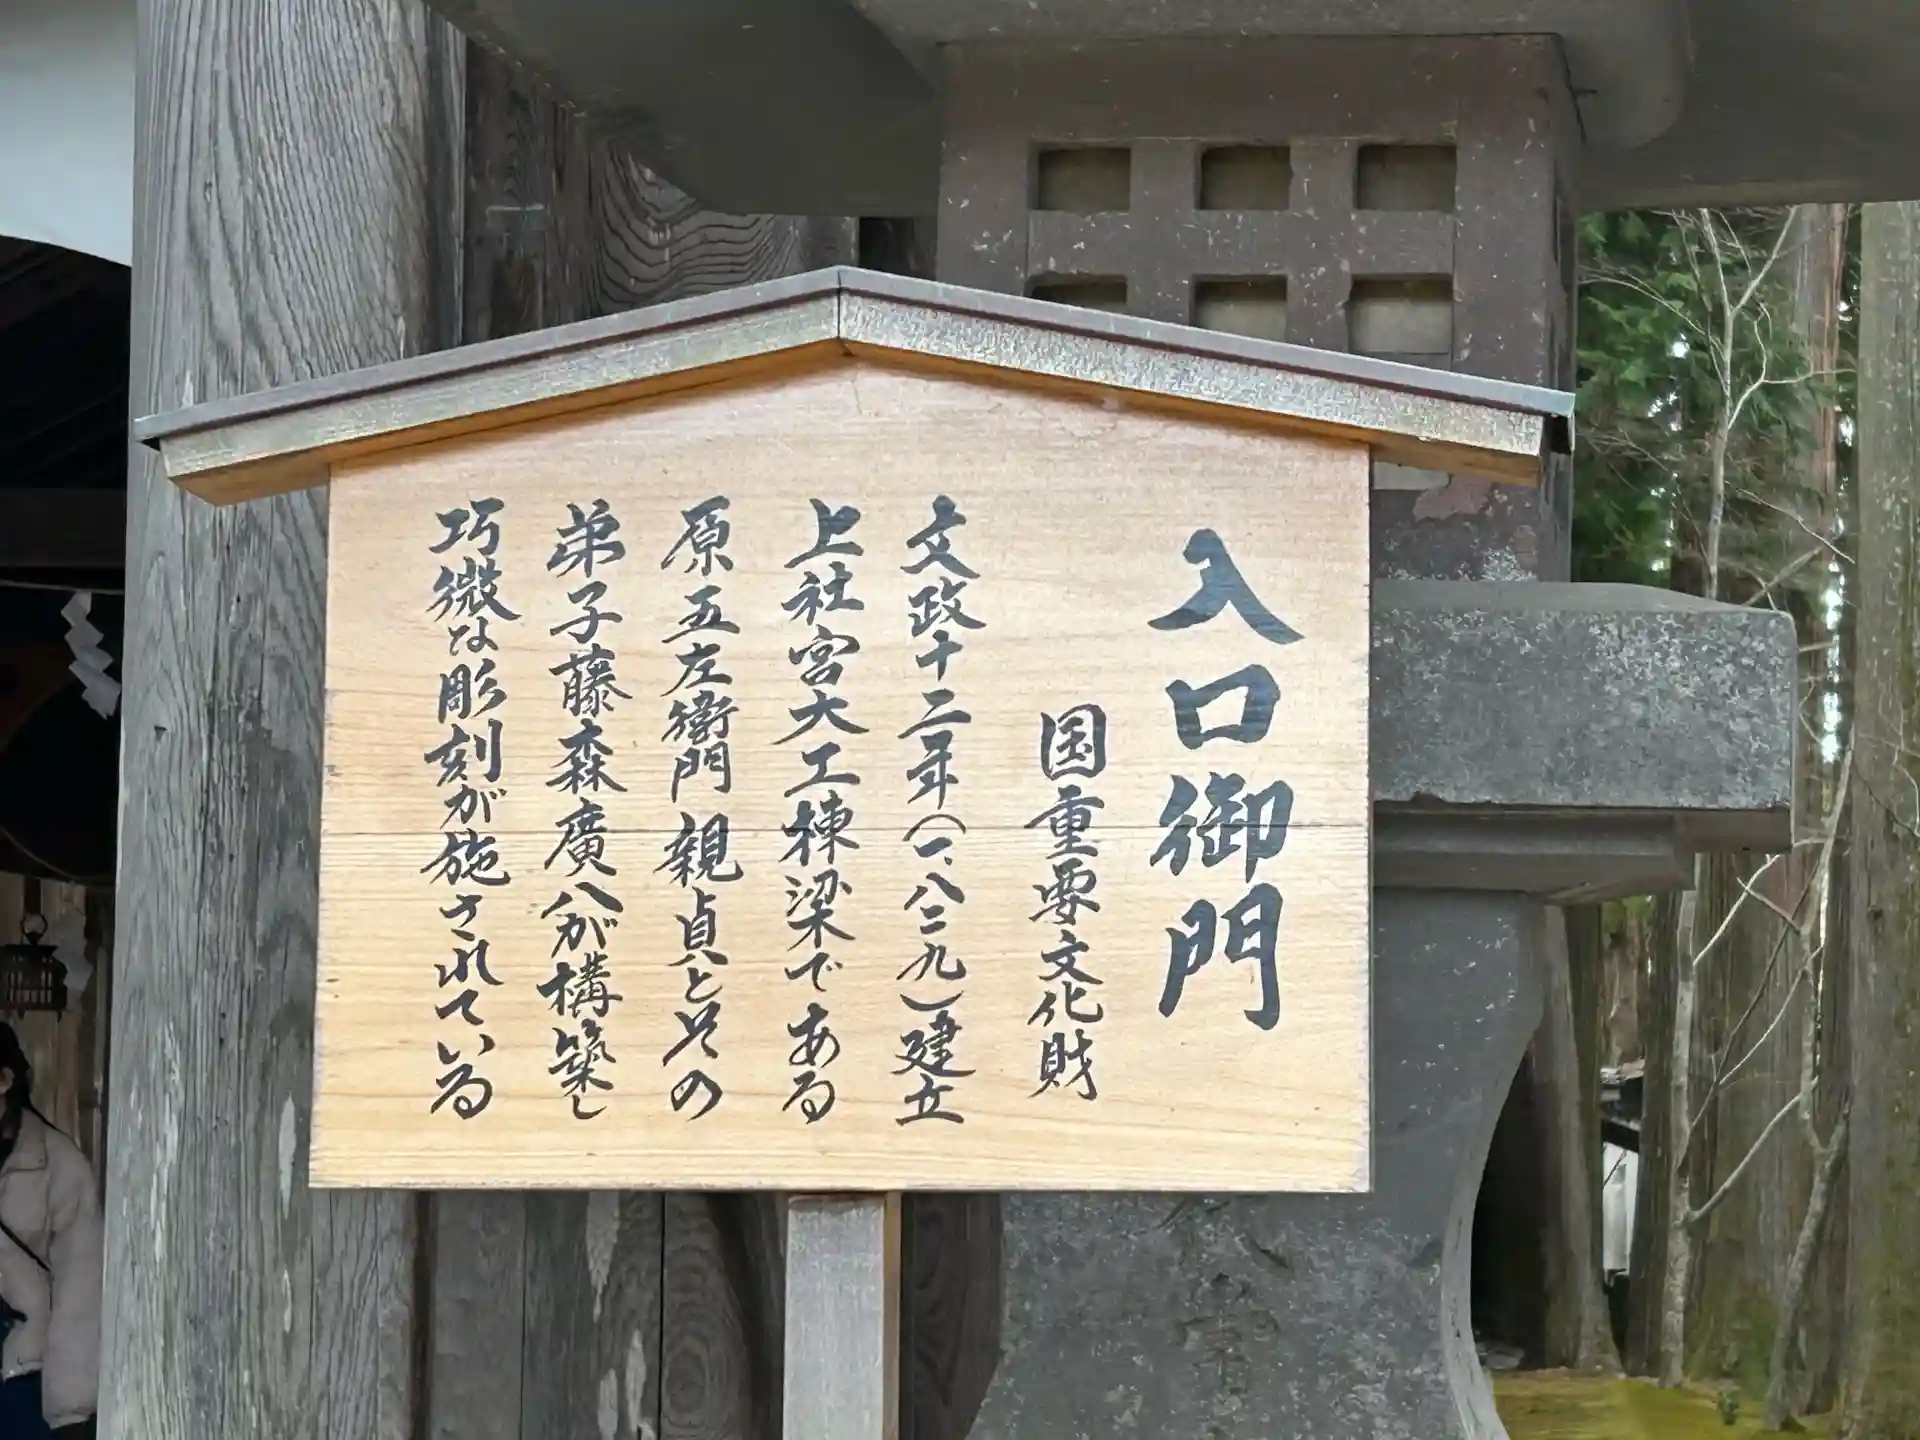 入口御門
国重要文化財
文政十二年(一、八二九)建立
上社宮大工棟梁である
原五左衛門親貞とその
弟子藤森廣八が構築し
巧微な彫刻が施されている